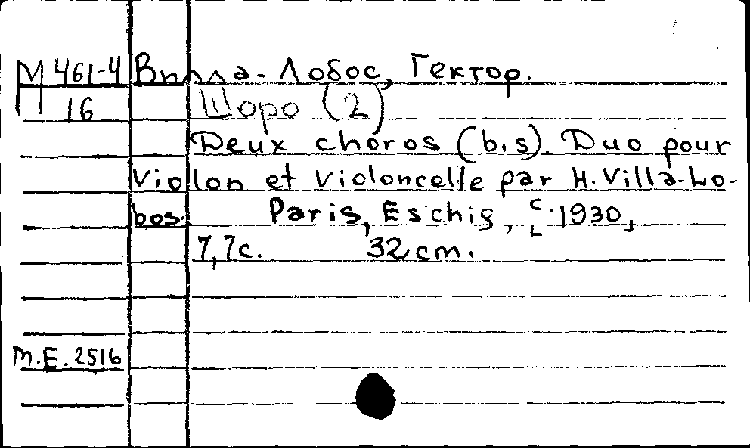 М 461-4 Вилла-Лобос, Гектор.
16 Шоро (2)
Deux choros (b,s). Duo pour
violon et violoncelle par H. Villa-Lo-
bos. Paris, Eschig, [c. 1930,
7,7с. 32cm.
M.E. 2516